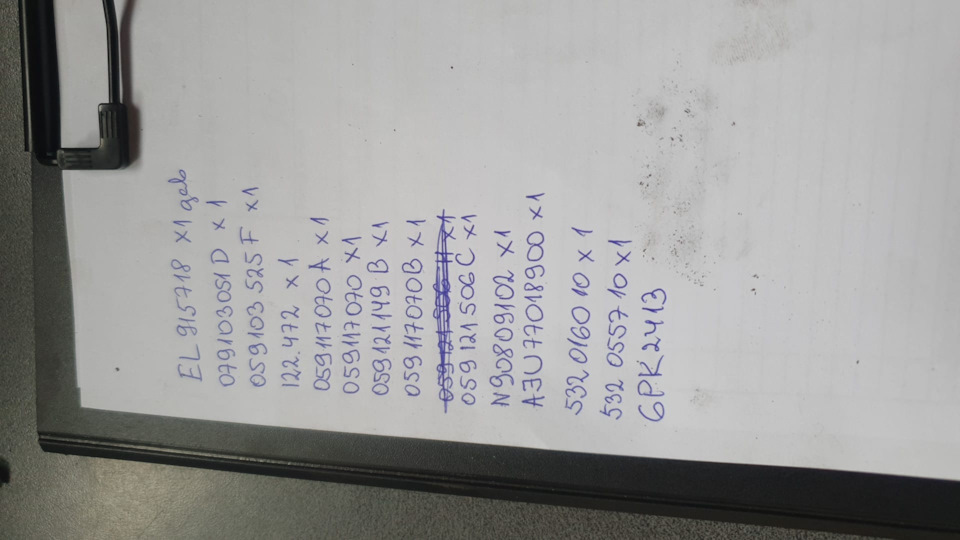 EL 915718 x1 gab
079103051D x 1
059103 525 F x1
122.472 x 1
059117070 A x 1
059117070 x1
059121149 B x1
059117070B x 1
059 121 506 H x1
059 121 506 C x1
N90809102 x1
A3U77018900 x1
532 0160 10 x 1
532 0557 10 x 1
6PK2413